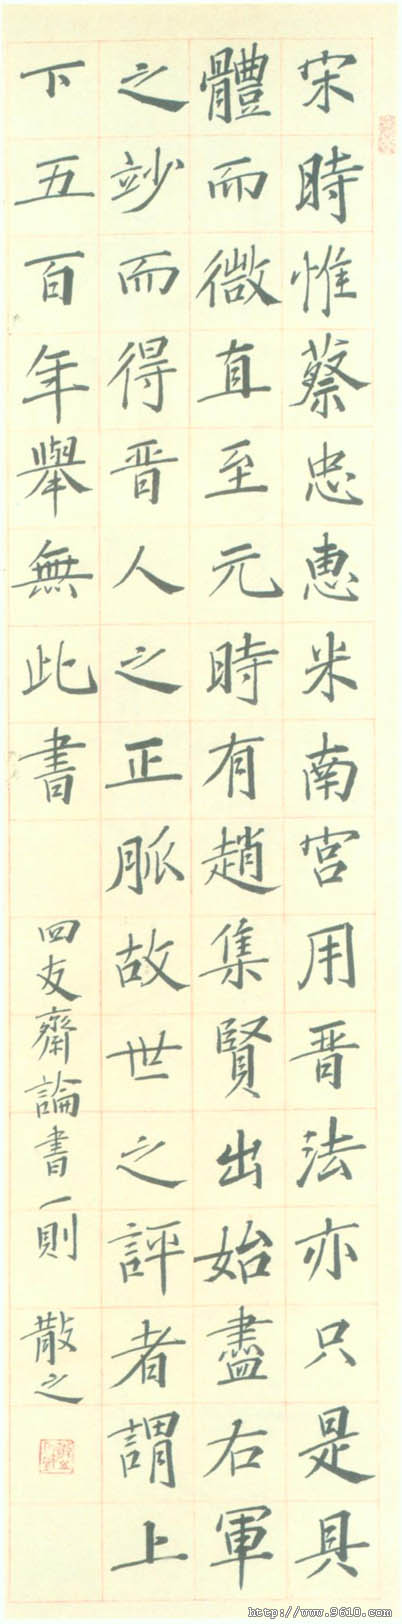 宋時惟蔡忠惠米南宮用晋法亦只是具
體而微直至元時有趙集賢出始盡右軍
之妙而得晋人之正脈故世之評者謂上
下五百年舉無此書
四友齋論書一則 散之
http://www.9610.com